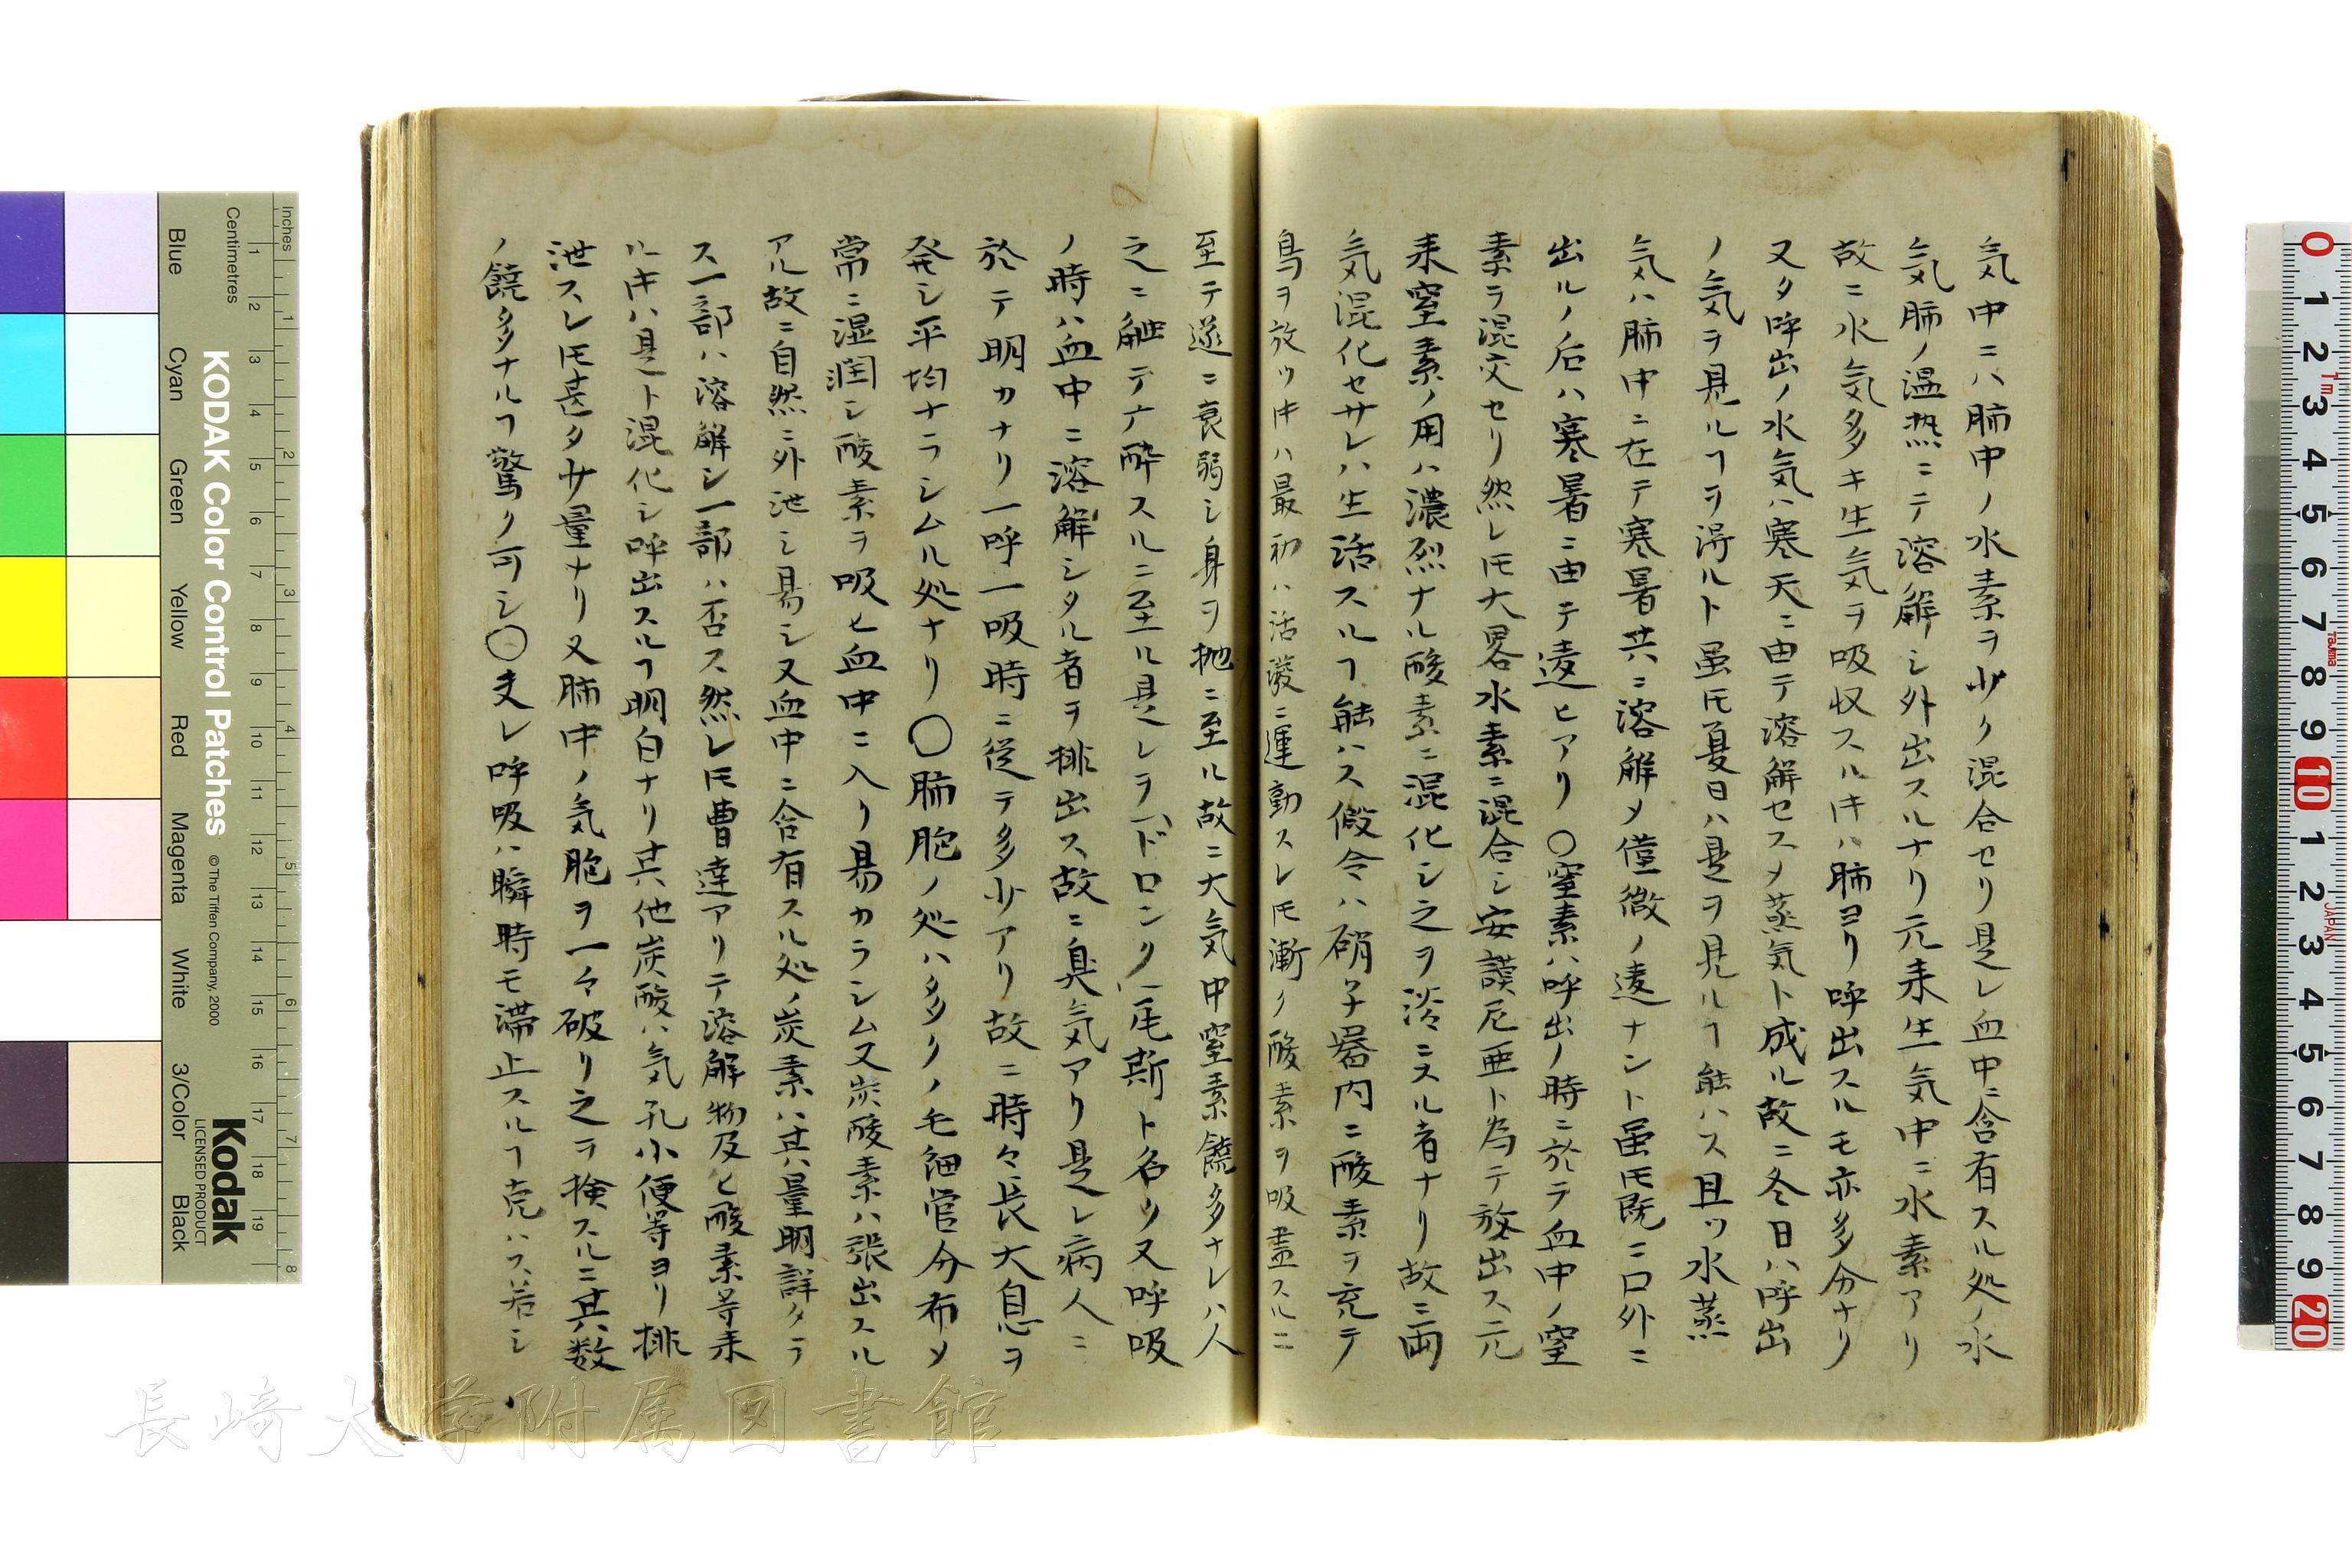 気中ニハ肺中ノ水素ヲ少ク混合セリ是レ血中ニ含有スル処ノ水
気肺ノ温热ニテ溶解シ外出スルナリ元来生気中ニ水素アリ
故ニ水気多キ生気ヲ吸収スル𪜈ハ肺ヨリ呼出スルモ亦多分ナリ
又タ呼出ノ水気ハ寒天ニ由テ溶解セスメ蒸気ト成ル故ニ冬日ハ呼出
ノ気ヲ見ルヿヲ得ルト虽𪜈夏日ハ是ヲ見ルヿ能ハス且ツ水蒸
気ハ肺中ニ在テ寒暑共ニ溶解メ僅微ノ違ナント虽𪜈既ニ口外ニ
出ルノ后ハ寒暑ニ由テ違ヒアリ〇窒素ハ呼出ノ時ニ於テ血中ノ窒
素ヲ混交セリ然レ𪜈大畧水素ニ混合シ安謨尼亜ト為テ放出ス元
来窒素ノ用ハ濃烈ナル酸素ニ混化シ之ヲ淡ニスル者ナリ故ニ両
気混化セサレハ生活スルヿ能ハス假令ハ硝子器内ニ酸素ヲ充テ
鳥ヲ放ツ𪜈ハ最初ハ活潑ニ運動スレ𪜈漸ク酸素ヲ吸盡スルニ
至テ遂ニ衰弱シ身ヲ抛ニ至ル故ニ大気中窒素饒多ナレハ人
之ニ触テ酔スルニ至ル是レヲドロンク尾斯ト名ツ又呼吸
ノ時ハ血中ニ溶解シタル者ヲ排出ス故ニ臭気アリ是レ病人ニ
於テ明カナリ一呼一吸時ニ從テ多少アリ故ニ時々長大息ヲ
発シ平均ナラシムル処ナリ〇肺胞ノ処ハ多クノ毛細管分布メ
常ニ湿潤シ酸素ヲ吸ヒ血中ニ入リ易カラシム又炭酸素ハ張出スル
アル故ニ自然ニ外泄シ易シ又血中ニ含有スル処ノ炭素ハ其量明詳タラ
ス一部ハ溶解シ一部ハ否ス然レ𪜈曹達アリテ溶解物及ヒ酸素等来
ル𪜈ハ是ト混化シ呼出スルヿ明白ナリ其他炭酸ハ気孔小便等ヨリ排
泄スレ𪜈甚タ少量ナリ又肺中ノ気胞ヲ一々破リ之ヲ検スルニ其数
ノ饒多ナルヿ驚ク可シ〇夫レ呼吸ハ瞬時モ滞止スルヿ克ハス若シ
長崎大学附属図書館
KODAK Color Control Patches
© The Tiffen Company, 2000
Kodak
LICENSED PRODUCT
Inches
Centimetres
Blue
Cyan
Green
Yellow
Red
Magenta
White
3/Color
Black
JAPAN